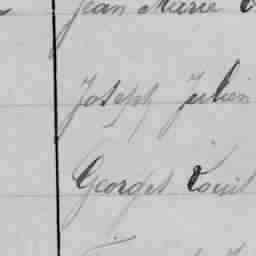 Jean Marie
Joseph Julien
Georges Louis